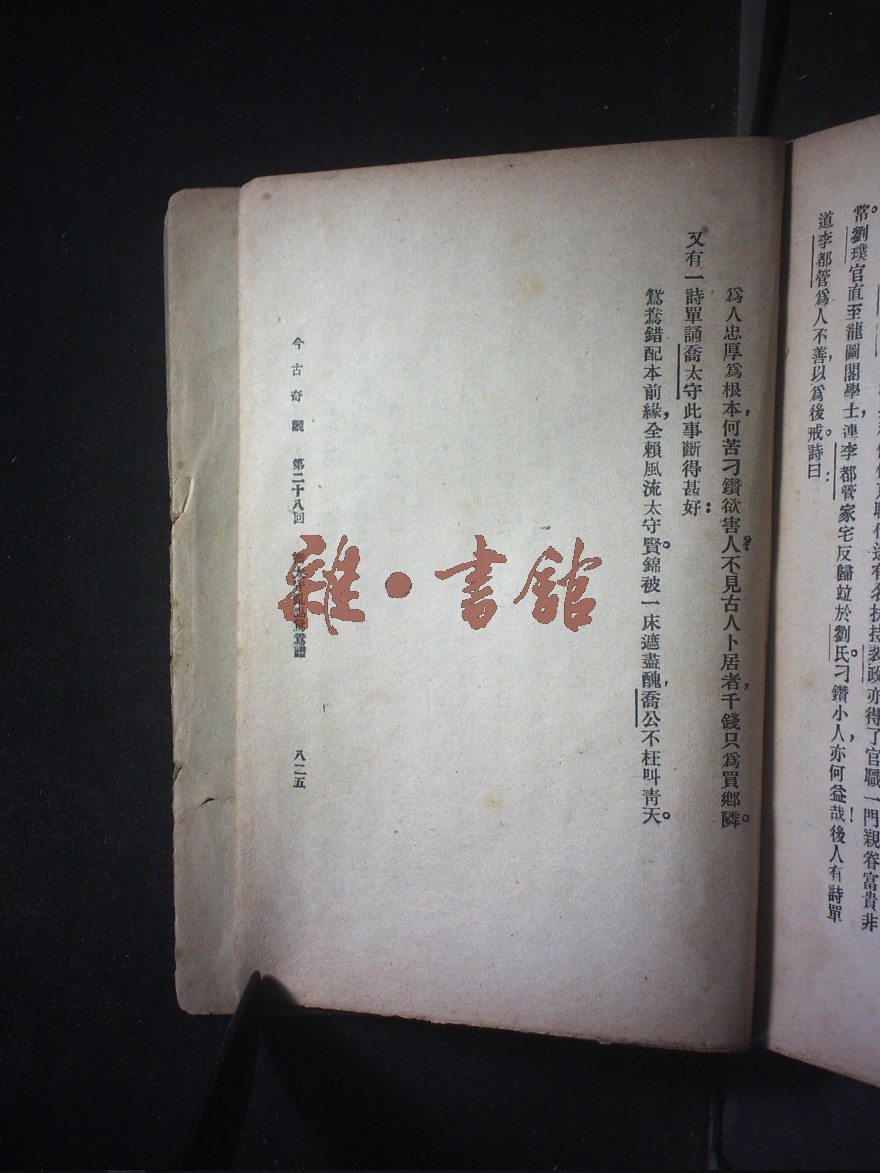 常。劉璞官直至龍圖閣學士,連李都管家宅反歸竝於劉氏。刁鑽小人,亦何益哉!後人有詩單
道李都管爲人不善,以爲後戒。詩曰:
爲人忠厚爲根本,何苦刁鑽欲害人?不見古人卜居者,千錢只爲買鄉隣。
又有一詩單誦喬太守此事斷得甚好:
鴛鴦錯配本前緣,全賴風流太守賢。錦被一床遮盡醜,喬公不枉叫靑天。
今古奇觀 第二十八回 鴛鴦譜 八二五
雜・書館